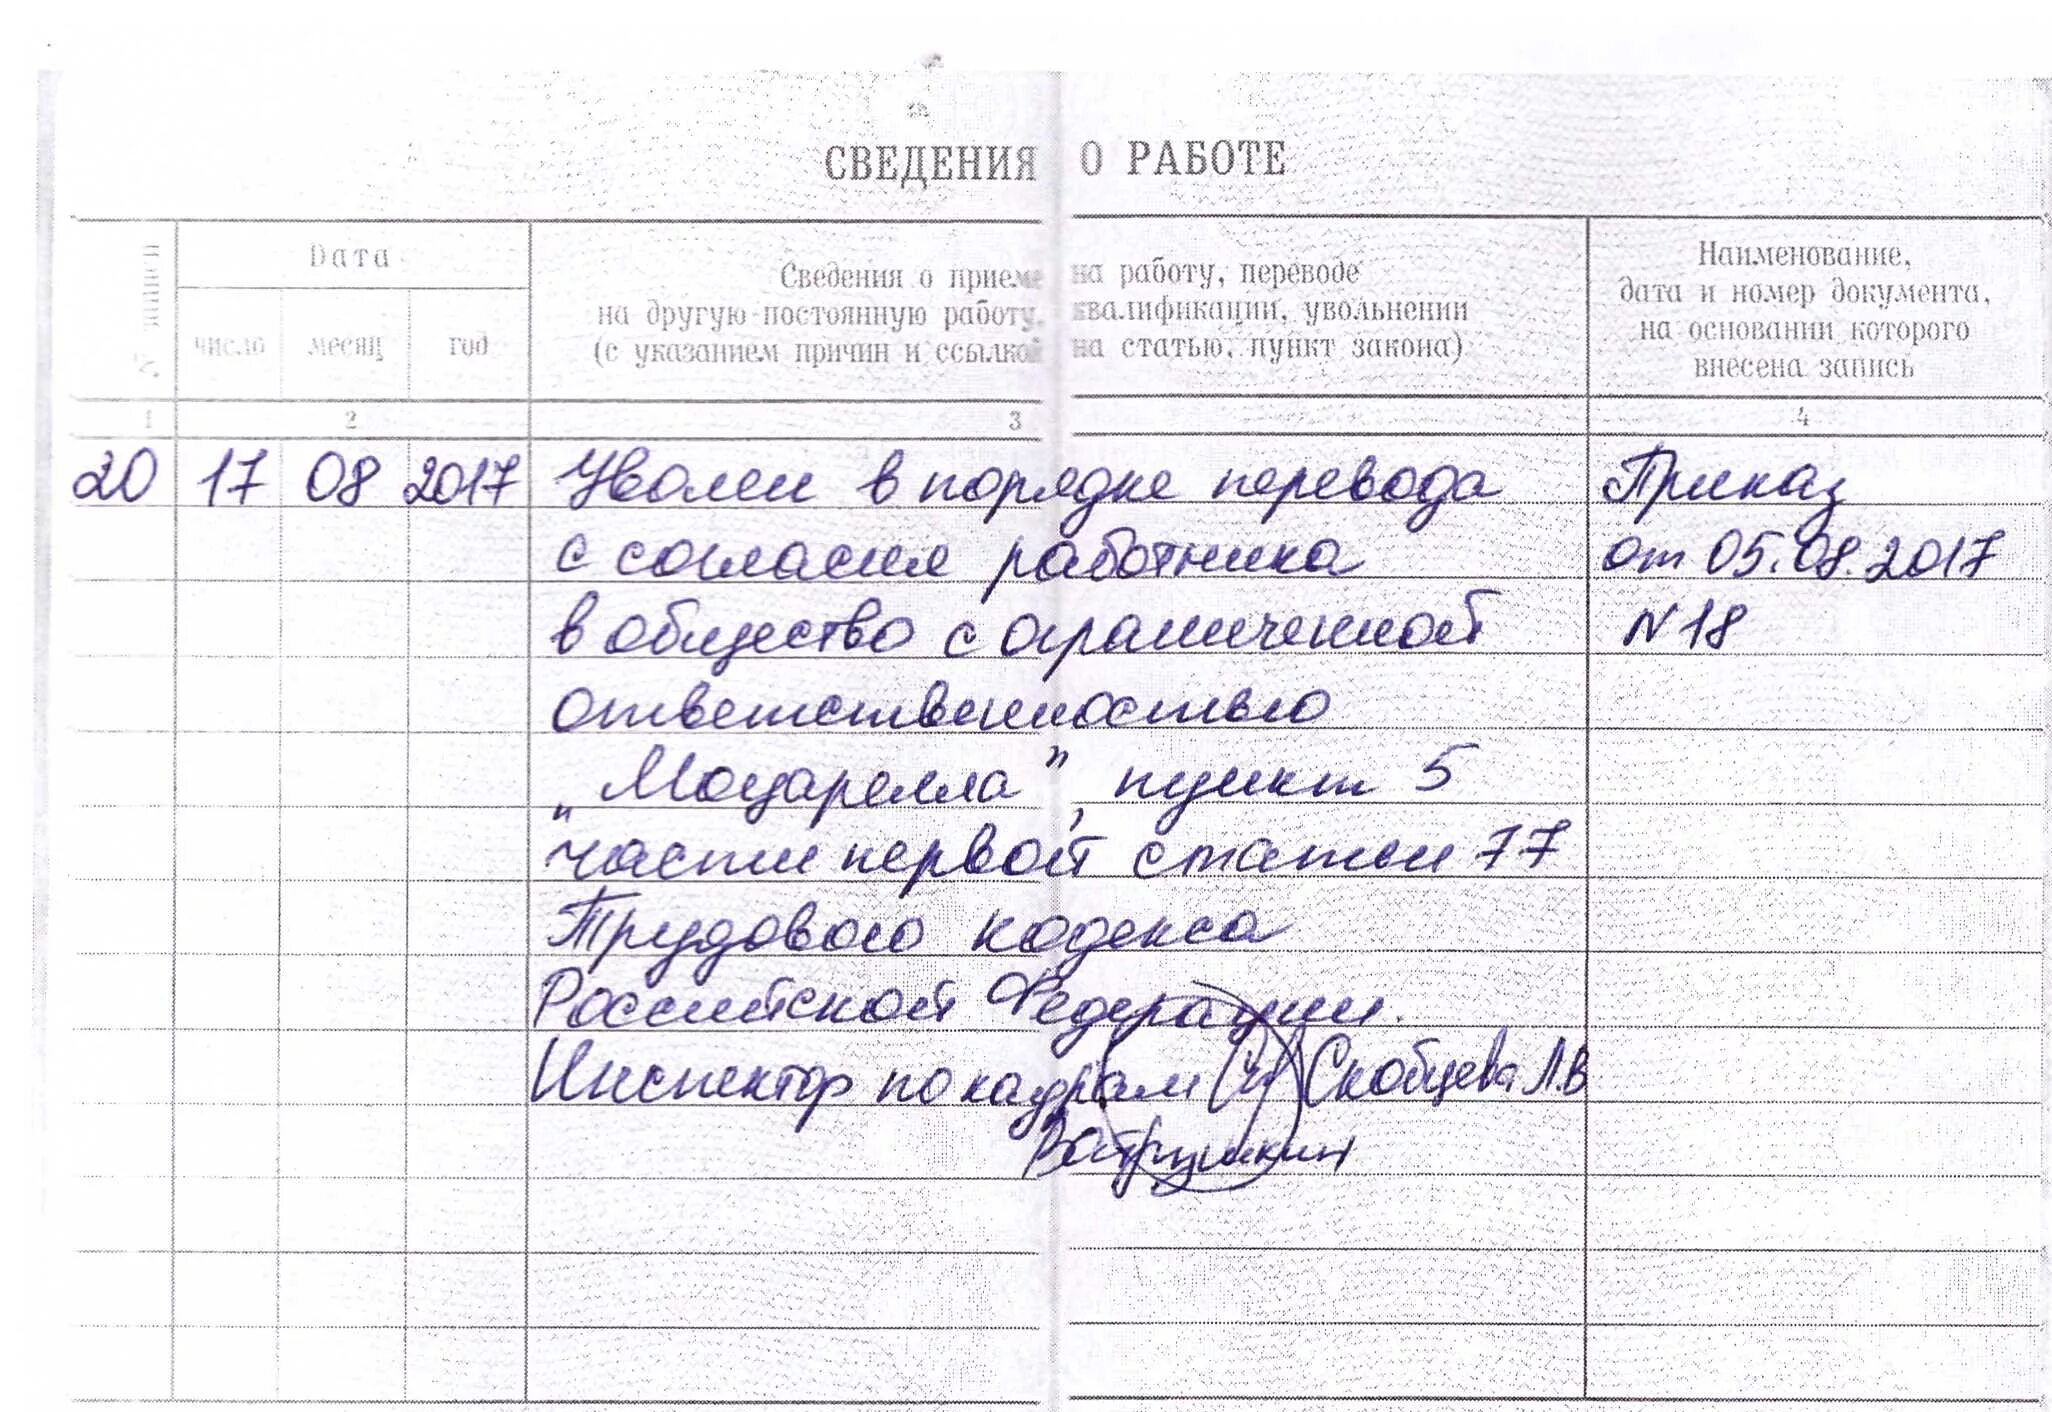 СВЕДЕНИЯ О РАБОТЕ
№ записи
Дата
Сведения о приеме на работу, переводе
на другую постоянную работу, квалификации, увольнении
(с указанием причин и ссылкой на статью, пункт закона)
Наименование,
дата и номер документа,
на основании которого
внесена запись
число месяц год
1 2 3 4
20 17 08 2017 Уволен в порядке перевода Приказ
с согласия работника от 05.08.2017
в общество с ограниченной N 18
ответственностью
„Моцарелла", пункт 5
части первой статьи 77
Трудового кодекса
Российской Федерации.
Инспектор по кадрам Скобцева Л.В
Ватрушкин